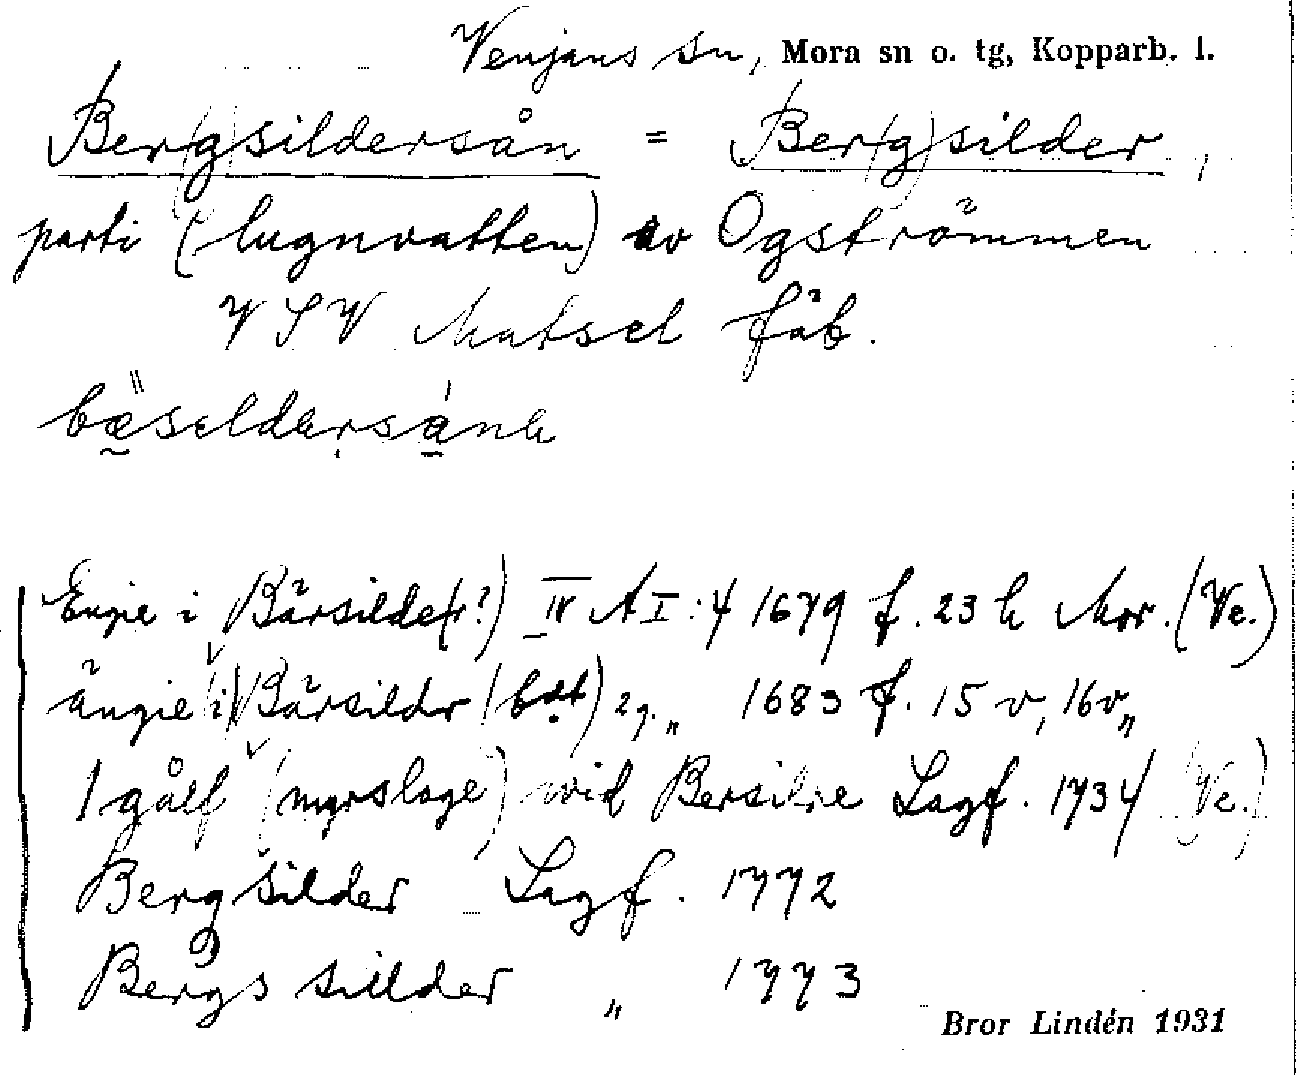 Venjans sn, Mora sn o. tg, Kopparb. l.
Ber(g)sildersån = Ber(g)silder,
parti (lugnvatten) av Ogströmmen
VSV Matsel fäb.
Engie i Bärsilde(r?) IV A I:4 1679 f. 23 h Mor. (Ve.)
ängie (i) Bärsilder 2g. „ 1683 f. 15 v, 16v „
1 gålf (myrsloge) wid Bersilre Lagf. 1734 (Ve.)
Bergsilder Lagf. 1772
Bergs silder „ 1773
Bror Lindén 1931